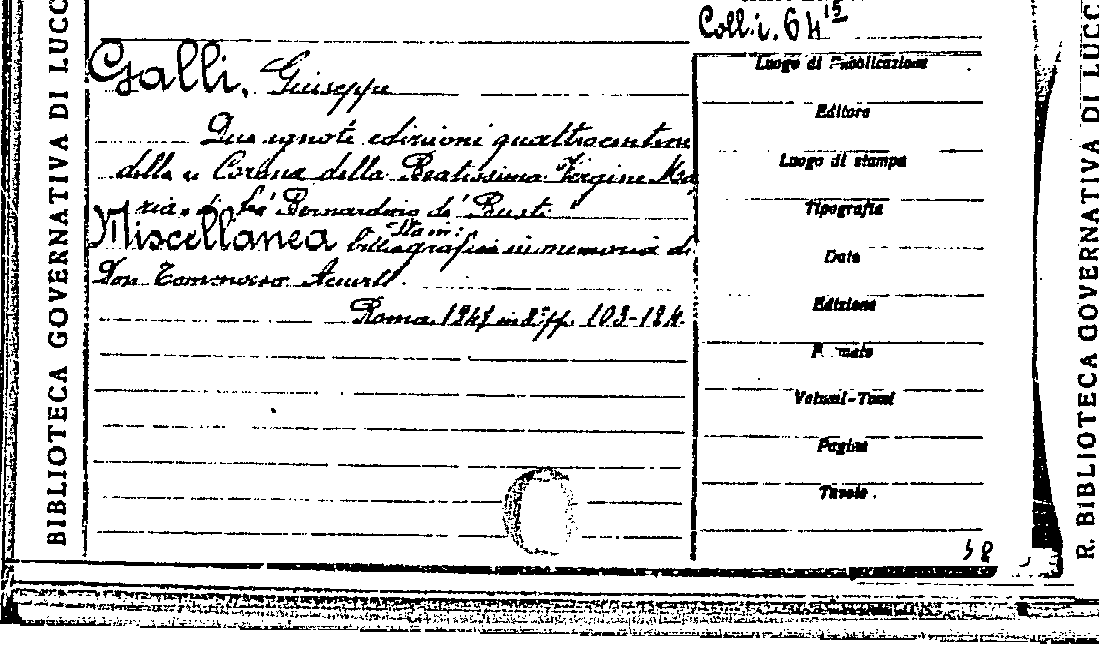 Coll. i. 64 15
Galli, Giuseppe
Due ignote edizioni quattrocentine
della « Corona della Beatissima Vergine Ma
ria » di fra Bernardino de' Busti.
Sta in:
Miscellanea bibliografica in memoria di
Don Tommaso Accurti.
Roma, 1947 in 8° pp. 103-124.
Luogo di Pubblicazione
Editore
Luogo di stampa
Tipografia
Data
Edizione
Formato
Volumi-Tomi
Pagine
Tavole
BIBLIOTECA GOVERNATIVA DI LUCC
R. BIBLIOTECA GOVERNATIVA DI LUCC